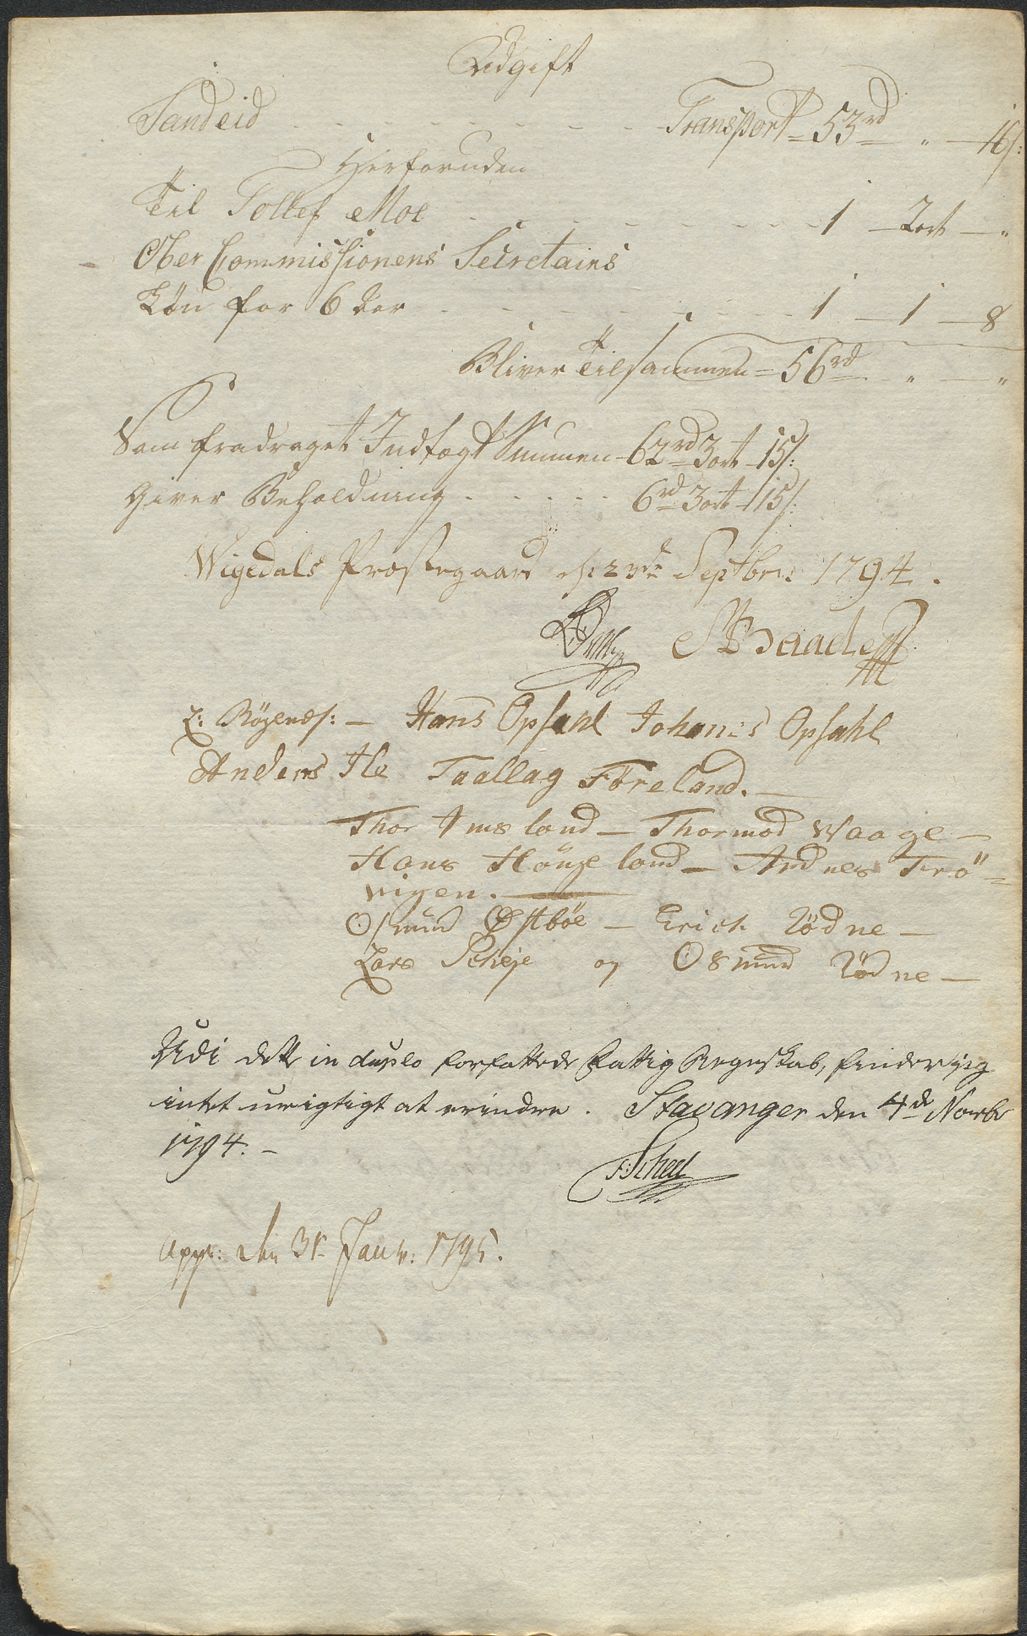 Udgift
Sandeid - - - Transport = 53 rd " 16 s:
Herforuden
Til Tollef Moe - - - 1 - 2 ort - "
Ober Commissionens Secretairs
Løn for 6 - - - 1 - 1 - 8
Bliver Tilsammen = 56 rd " - "
Som fradraget Indtægt Summen 62 rd 3 ort 15 s:
Giver Beholdning - - - 6 rd 3 ort 15 s:
Præstegaard Septbr: 1794.
SBaade
Hans Opsahl Johanes Opsahl
Anders Ile Taallag Føreland.
Thor Imsland - Thormod Waage -
Hans Høugeland - Ardnes Frö=
vigen.
Osmund Østbøe - Erich Rödne -
Lars Scheje og Osmund Rödne -
Udi dette in duplo forfattede Fattig Regnskab, finder jeg
intet urigtigt at erindre. Stavanger den 4de Novbr
1794. -
Scheel
den 31 Janv: 1795.